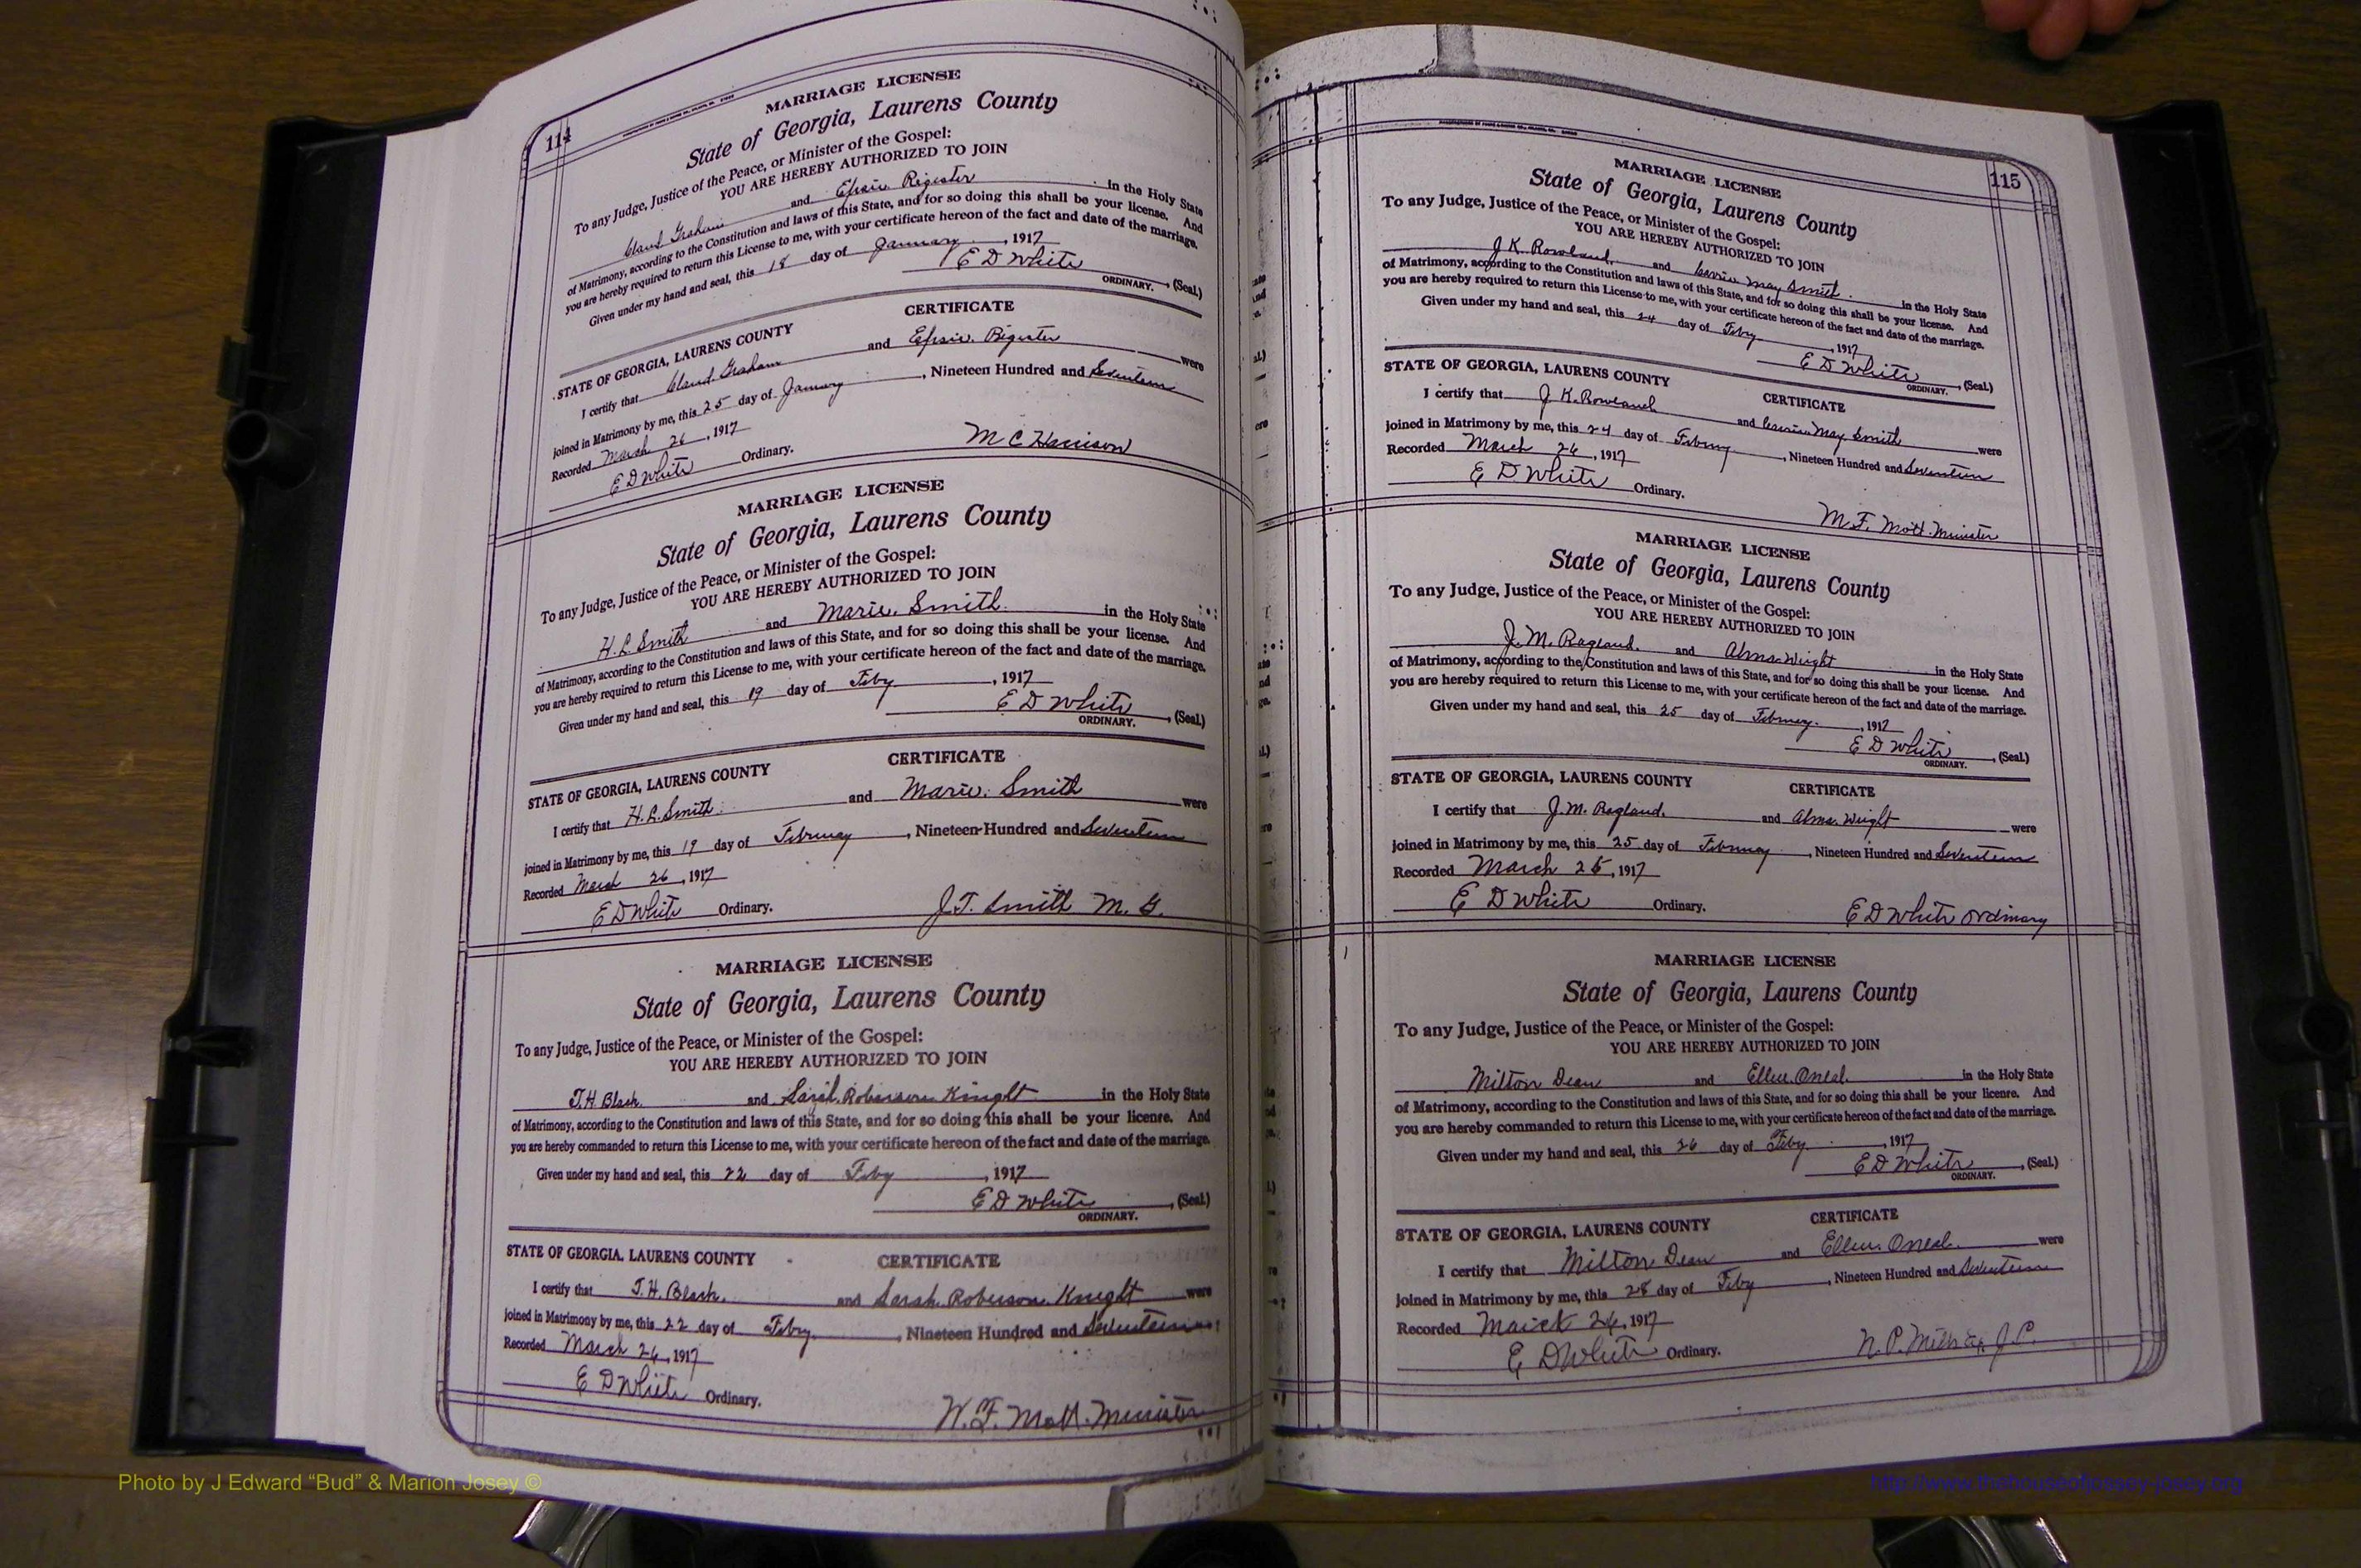 114
MARRIAGE LICENSE
State of Georgia, Laurens County
To any Judge, Justice of the Peace, or Minister of the Gospel:
YOU ARE HEREBY AUTHORIZED TO JOIN
Claud Graham and Effsie Rigister in the Holy State
of Matrimony, according to the Constitution and laws of this State, and for so doing this shall be your license. And
you are hereby required to return this License to me, with your certificate hereon of the fact and date of the marriage.
Given under my hand and seal, this 18 day of January, 1917
E D White (Seal.)
ORDINARY.
CERTIFICATE
STATE OF GEORGIA, LAURENS COUNTY
I certify that Claud Graham and Rigister were
joined in Matrimony by me, this 25 day of January, Nineteen Hundred and Seventeen
Recorded March 26, 1917
E D White Ordinary.
M C Harrison
MARRIAGE LICENSE
State of Georgia, Laurens County
To any Judge, Justice of the Peace, or Minister of the Gospel:
YOU ARE HEREBY AUTHORIZED TO JOIN
H. L. Smith and Marie Smith in the Holy State
of Matrimony, according to the Constitution and laws of this State, and for so doing this shall be your license. And
you are hereby required to return this License to me, with your certificate hereon of the fact and date of the marriage.
Given under my hand and seal, this 19 day of Feby, 1917
E D White, (Seal.)
ORDINARY.
CERTIFICATE
STATE OF GEORGIA, LAURENS COUNTY
I certify that H. L. Smith and Marie Smith were
joined in Matrimony by me, this 19 day of February, Nineteen Hundred and Seventeen
Recorded March 26, 1917
E D White Ordinary.
J. T. Smith M. G.
MARRIAGE LICENSE
State of Georgia, Laurens County
To any Judge, Justice of the Peace, or Minister of the Gospel:
YOU ARE HEREBY AUTHORIZED TO JOIN
T. H. Black and Sarah Roberson Knight in the Holy State
of Matrimony, according to the Constitution and laws of this State, and for so doing this shall be your licenre. And
you are hereby commanded to return this License to me, with your certificate hereon of the fact and date of the marriage.
Given under my hand and seal, this 22 day of Feby, 1917
E D White, (Seal.)
ORDINARY.
STATE OF GEORGIA. LAURENS COUNTY CERTIFICATE
I certify that T. H. Black and Sarah Roberson Knight were
joined in Matrimony by me, this 22 day of Feby, Nineteen Hundred and Seventeen
Recorded March 26, 1917
E D White Ordinary.
W. F. Mott Minister
115
MARRIAGE LICENSE
State of Georgia, Laurens County
To any Judge, Justice of the Peace, or Minister of the Gospel:
YOU ARE HEREBY AUTHORIZED TO JOIN
J K. Rowland and May Smith in the Holy State
of Matrimony, according to the Constitution and laws of this State, and for so doing this shall be your license. And
you are hereby required to return this License to me, with your certificate hereon of the fact and date of the marriage.
Given under my hand and seal, this 24 day of Feby, 1917
E D White, (Seal.)
ORDINARY.
STATE OF GEORGIA, LAURENS COUNTY
CERTIFICATE
I certify that J K. Rowland and May Smith were
joined in Matrimony by me, this 24 day of Februay, Nineteen Hundred and Seventeen
Recorded March 26, 1917
E D White Ordinary.
M. F. Mott Minister
MARRIAGE LICENSE
State of Georgia, Laurens County
To any Judge, Justice of the Peace, or Minister of the Gospel:
YOU ARE HEREBY AUTHORIZED TO JOIN
J. M. Ragland and Alma Wright in the Holy State
of Matrimony, according to the Constitution and laws of this State, and for so doing this shall be your license. And
you are hereby required to return this License to me, with your certificate hereon of the fact and date of the marriage.
Given under my hand and seal, this 25 day of February, 1917
E D White, (Seal.)
ORDINARY.
STATE OF GEORGIA, LAURENS COUNTY CERTIFICATE
I certify that J. M. Ragland and Alma Wright were
joined in Matrimony by me, this 25 day of February, Nineteen Hundred and Seventeen
Recorded March 25, 1917
E D White Ordinary.
E D White ordinary
MARRIAGE LICENSE
State of Georgia, Laurens County
To any Judge, Justice of the Peace, or Minister of the Gospel:
YOU ARE HEREBY AUTHORIZED TO JOIN
Milton Dean and Ellen Oneal in the Holy State
of Matrimony, according to the Constitution and laws of this State, and for so doing this shall be your licenre. And
you are hereby commanded to return this License to me, with your certificate hereon of the fact and date of the marriage.
Given under my hand and seal, this 26 day of Feby, 1917
E D White, (Seal.)
ORDINARY.
STATE OF GEORGIA, LAURENS COUNTY CERTIFICATE
I certify that Milton Dean and Ellen Oneal were
joined in Matrimony by me, this 28 day of Feby, Nineteen Hundred and Seventeen
Recorded March 26, 1917
E D White Ordinary.
N. P. J. P.
Photo by J Edward “Bud” & Marion Josey ©
http://www.thehouseofjossey-josey.org